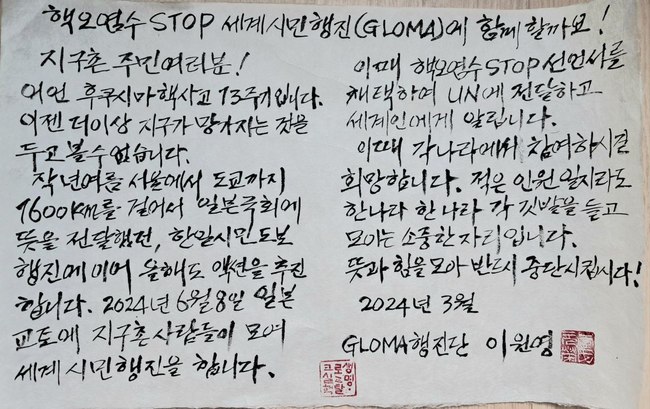 핵오염수 STOP 세계시민행진(GLOMA)에 함께 할까요!
지구촌 주민여러분!
어언 후쿠시마핵사고 13주기입니다.
이젠 더이상 지구가 망가지는 것을
두고 볼수 없습니다.
작년여름 서울에서 도쿄까지
1600km를 걸어서 일본국회에
뜻을 전달했던, 한일시민도보
행진에 이어 올해도 액션을 추진
합니다. 2024년 6월 8일 일본
교토에 지구촌사람들이 모여
세계시민행진을 합니다.
이때 핵오염수 STOP 선언서를
채택하여 UN에 전달하고
세계인에게 알립니다.
이때 각나라에서 참여하시길
희망합니다. 적은 인원일지라도
한나라 한나라 각 깃발을 들고
모이는 소중한 자리입니다.
뜻과 힘을 모아 반드시 중단시킵시다!
2024년 3월
GLOMA행진단 이원영